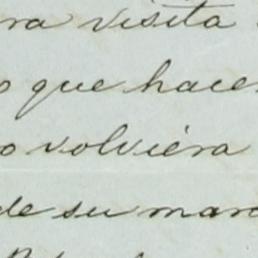 ra visita
o que hacer
o volviéra
de su mar